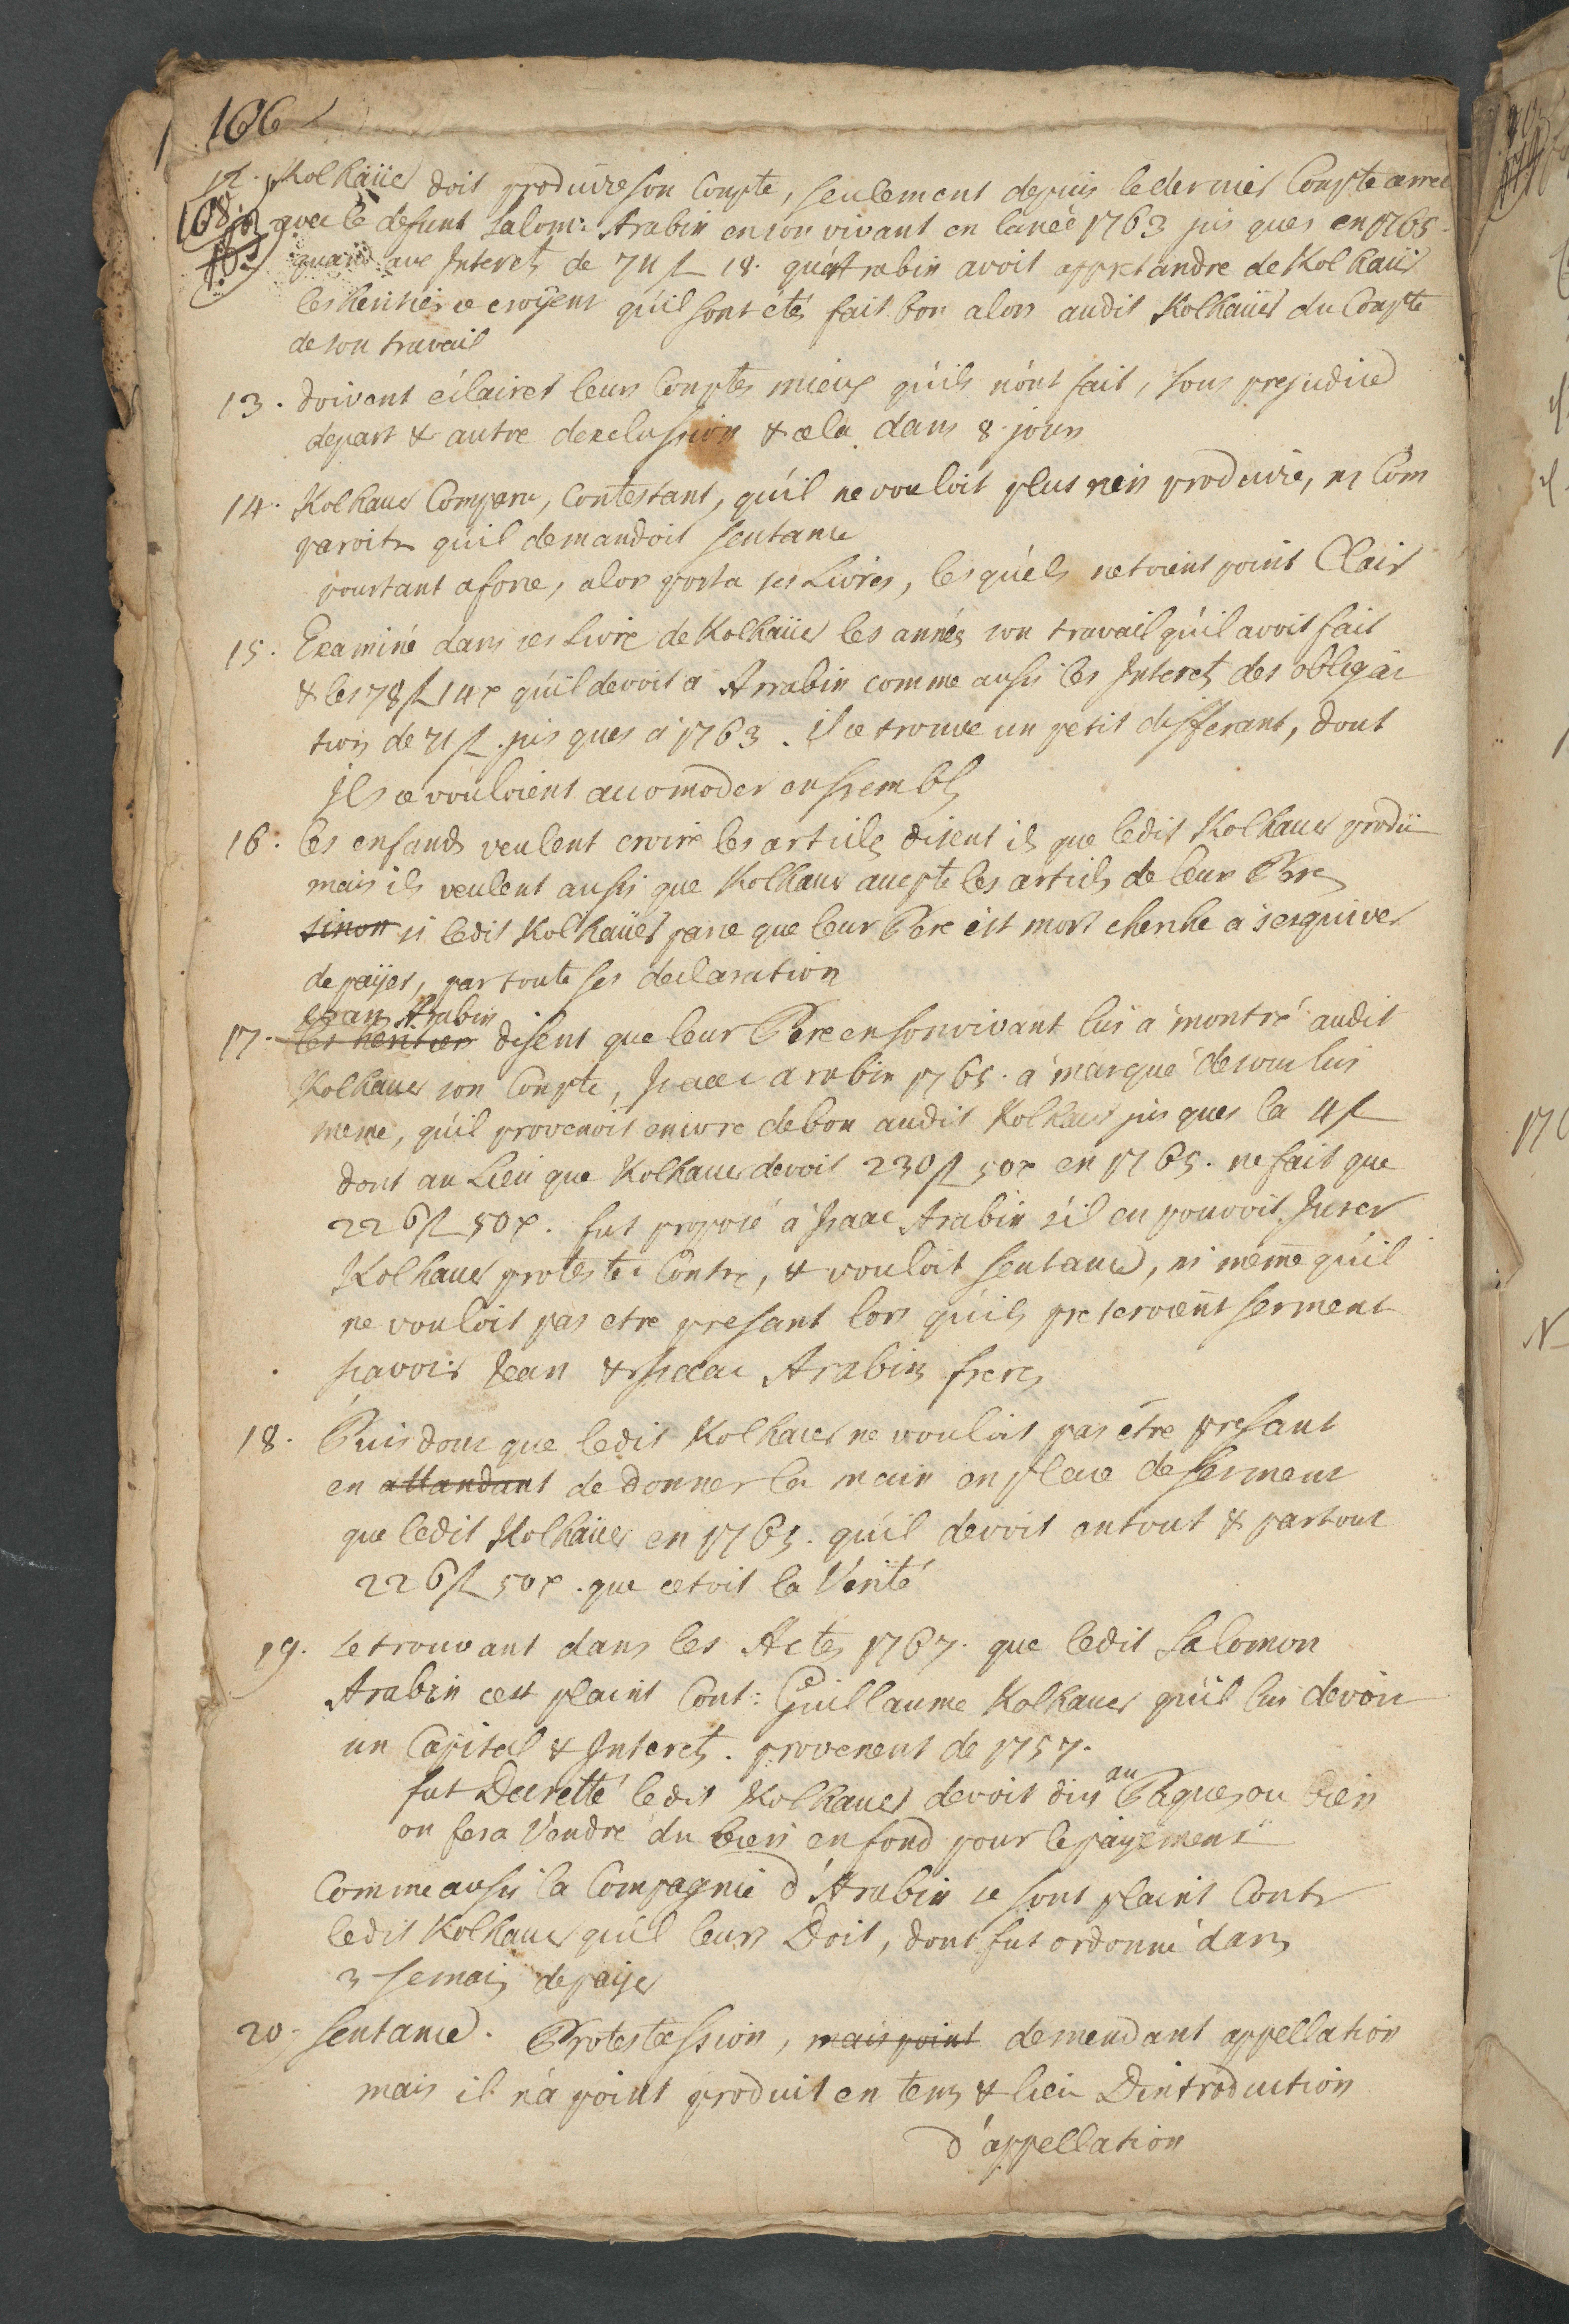 106
12. Kolhaüer doit produire son Compte, seulement depuis le dernier Compte arreté
avec le defunt Salom: Arabin en son vivant en lanée 1763 jus ques en 1765
quand aux Interets de 74 fl 18. qu'Arabin avoit appretandre de Kolhaüer
les heritier ce croÿent qu'il sont étés fait bon alors audit Kolhaüer du Compte
de son travail
13. doivent éclairer leurs Comptes mieux qu'ils n'ont fait, sous prejudice
depart & autre de exclussion & cela dans 8. jours
14. Kolhauer Comparu, Contestant, qu'il ne vouloit plus rien produire, ni Com
paroitr qu'il demandoit sentance
pourtant a force, alors porta ses Livres, lesquels netoient point Clair
15. Examiné dans ses Livre de Kolhaüer les années son travail qu'il avoit fait
& les 78 fl 14 x qu'il devoit a Arrabin comme aussi les Interets des obligac
tions de 71 fl. jus ques a 1763. il ce trouve un petit differant, dont
Ils ce vouloient accomoder enssembls
16. les enfands veulent croire les articles disent ils que ledit Kolhauer produi
mais ils veulent aussi que Kolhauer accepte les articls de leur Pere
sinon si ledit Kolhaüer parce que leur Pere est mort cherche a sesquiver
de païer, par toute ses declaration
Jean Arabin
17. les heritier disent que leur Pere en son vivant lui a montré audit
Kolhauer son Compte, Isaac arabin 1765. a marqué de
meme, qu'il provenoit encore de bon audit Kolhauer jus ques la 4 fl
dont au Lieu que Kolhauer devoit 230 fl 50 x en 1765. ne fait que
226 fl 50 x. fut proposé a Isaac Arabin s'il en pouvoit Jurer
Kolhauer protesta Contre, & vouloit sentance, ni meme qu'il
ne vouloit pas etre presant lors qu'ils preteroient serment
scavoir Jean & Isaac Arabin freres
18. Puis donc que ledit Kolhauer ne vouloit pas étre presant
en attandant de donner la main en place de serment
que ledit Kolhaüer en 1765. qu'il devoit en tout & partout
226 fl 50 x. que cetoit la Vérité
19. se trouvant dans les Actes 1767. que ledit Salomon
Arabin cest plaint Cont: Guillaume Kolhauer qu'il lui devoit
un Capital & Interets. provenent de 1757.
fut Decretté ledit Kolhauer devoit dici au Pâques ou bien
on fera Vendre du bien en fond pour le païement
Comme aussi la Compagnie d'Arabin se sont plaint Contr
ledit Kolhauer qu'il leurs Doit, dont fut ordonné dans
3 semais de païer
20. sentance. Protestession, mais point demendant appellation
mais il n'a point produit en tems & lieu Dintroduction
d'appellation